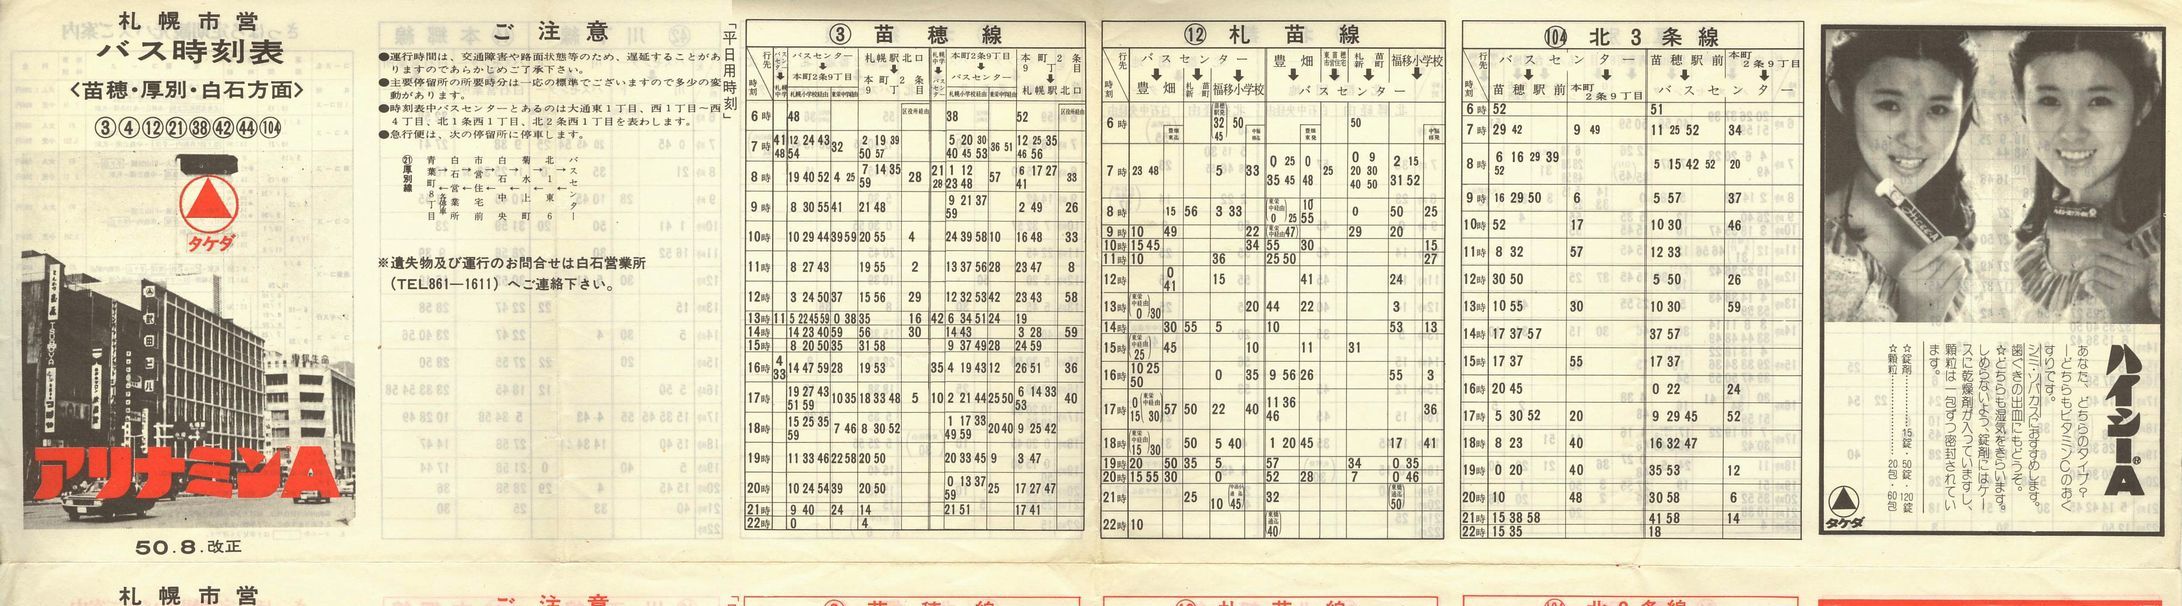 札幌市営
バス時刻表
〈苗穂・厚別・白石方面〉
③④⑫㉑㊳㊷㊹(104)
タケダ
アリナミンA
50.8.改正
ご注意
●運行時間は、交通障害や路面状態等のため、遅延することがあ
りますのであらかじめご了承下さい。
●主要停留所の所要時分は一応の標準でございますので多少の変
動があります。
●時刻表中バスセンターとあるのは大通東1丁目、西1丁目〜西
4丁目、北1条西1丁目、北2条西1丁目を表わします。
●急行便は、次の停留所に停車します。
㉑厚別線
青葉町8丁目
白石営業所
市営住宅前
白石中央
菊水上町
北1東6
バスセンター
※遺失物及び運行のお問合せは白石営業所
(TEL861―1611)へご連絡下さい。
「平日用時刻」
③苗穂線
行先
時刻
バスセンター
本町2条9丁目
札幌駅北口
本町2条9丁目
本町2条9丁目
バスセンター
本町2条9丁目
札幌駅北口
6時 48 38 52
7時 41 48 12 24 43 54 32 2 19 39 50 57 5 20 30 40 45 53 36 51 12 25 35 46 56
8時 19 40 52 4 25 7 14 35 59 28 21 28 1 12 23 48 57 6 17 27 41 33
9時 8 30 55 41 21 48 9 21 37 59 2 49 26
10時 10 29 44 39 59 20 55 4 24 39 58 10 16 48 33
11時 8 27 43 19 55 2 13 37 56 28 23 47 8
12時 3 24 50 37 15 56 29 12 32 53 42 23 43 58
13時 11 5 22 45 59 0 38 35 16 42 6 34 51 24 19
14時 14 23 40 59 56 30 14 43 3 28 59
15時 8 20 50 35 31 58 9 37 49 28 24 59
16時 4 33 14 47 59 28 19 53 35 4 19 43 12 26 51 36
17時 19 27 43 51 59 10 35 18 33 48 5 10 2 21 44 25 50 6 14 33 53 40
18時 15 25 35 59 7 46 8 30 52 1 17 33 49 59 20 40 9 25 42
19時 11 33 46 22 58 20 50 20 33 45 9 3 47
20時 10 24 54 39 20 50 0 13 37 59 25 17 27 47
21時 9 40 24 14 21 51 17 41
22時 0 4
⑫札苗線
行先
時刻
バスセンター
豊畑
札苗
福移小学校
バスセンター
豊畑
札苗
福移小学校
6時 32 50 45 50
7時 23 48 33 0 25 0 35 45 48 25 0 9 20 30 40 50 2 15 31 52
8時 15 56 3 33 0 25 10 55 0 50 25
9時 10 49 22 47 29 20
10時 15 45 34 55 30 15
11時 10 36 25 50 27
12時 0 41 15 15 41 24
13時 0 30 20 44 22 3
14時 30 55 5 10 53 13
15時 25 45 10 11 31
16時 10 25 50 0 35 9 56 26 55 3
17時 0 15 30 57 50 22 40 11 36 46 36
18時 15 30 50 5 40 1 20 45 17 41
19時 20 50 35 5 57 34 0 35
20時 15 55 30 0 52 28 7 0 46
21時 25 10 45 32 50
22時 10 40
(104)北3条線
行先
時刻
バスセンター
苗穂駅前
本町2条9丁目
苗穂駅前
本町2条9丁目
バスセンター
6時 52 51
7時 29 42 9 49 11 25 52 34
8時 6 16 29 39 52 5 15 42 52 20
9時 16 29 50 6 5 57 37
10時 52 17 10 30 46
11時 8 32 57 12 33
12時 30 50 5 50 26
13時 10 55 30 10 30 59
14時 17 37 57 37 57
15時 17 37 55 17 37
16時 20 45 0 22 24
17時 5 30 52 20 9 29 45 52
18時 8 23 40 16 32 47
19時 0 20 40 35 53 12
20時 10 48 30 58 6
21時 15 38 58 41 58 14
22時 15 35 18
ハイシーA
あなた、どちらのタイプ?
―どちらもビタミンCのおく
すりです。
シミ・ソバカスにおすすめします。
歯ぐきの出血にもどうぞ。
☆どちらも湿気をきらいます。
しめらないよう、錠剤にはケー
スに乾燥剤が入っていますし、
顆粒は一包ずつ密封されてい
ます。
☆錠剤………15錠・50錠・120錠
☆顆粒………20包・60包
タケダ
札幌市営
ご注意